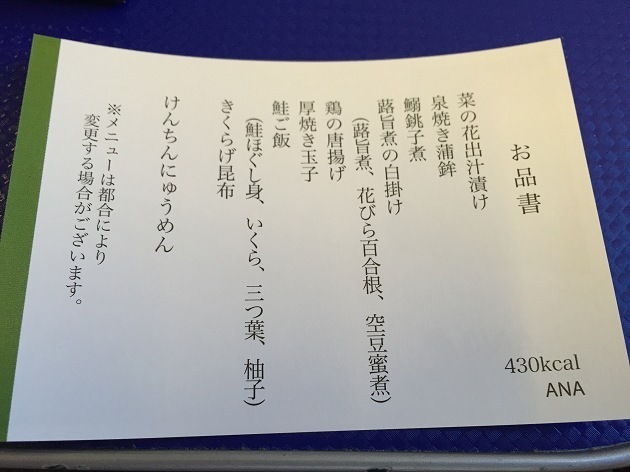 お品書
菜の花出汁漬け
泉焼き蒲鉾
鰯銚子煮
蕗旨煮の白掛け
(蕗旨煮、花びら百合根、空豆蜜煮)
鶏の唐揚げ
厚焼き玉子
鮭ご飯
(鮭ほぐし身、いくら、三つ葉、柚子)
きくらげ昆布
けんちんにゅうめん
※メニューは都合により
変更する場合がございます。
430kcal
ANA